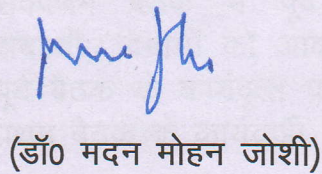 (डॉ0 मदन मोहन जोशी)